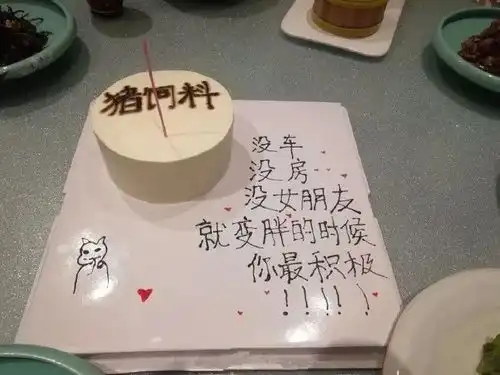 猪饲料
没车
没房...
没女朋友
就变胖的时候
你最积极
!!!!!